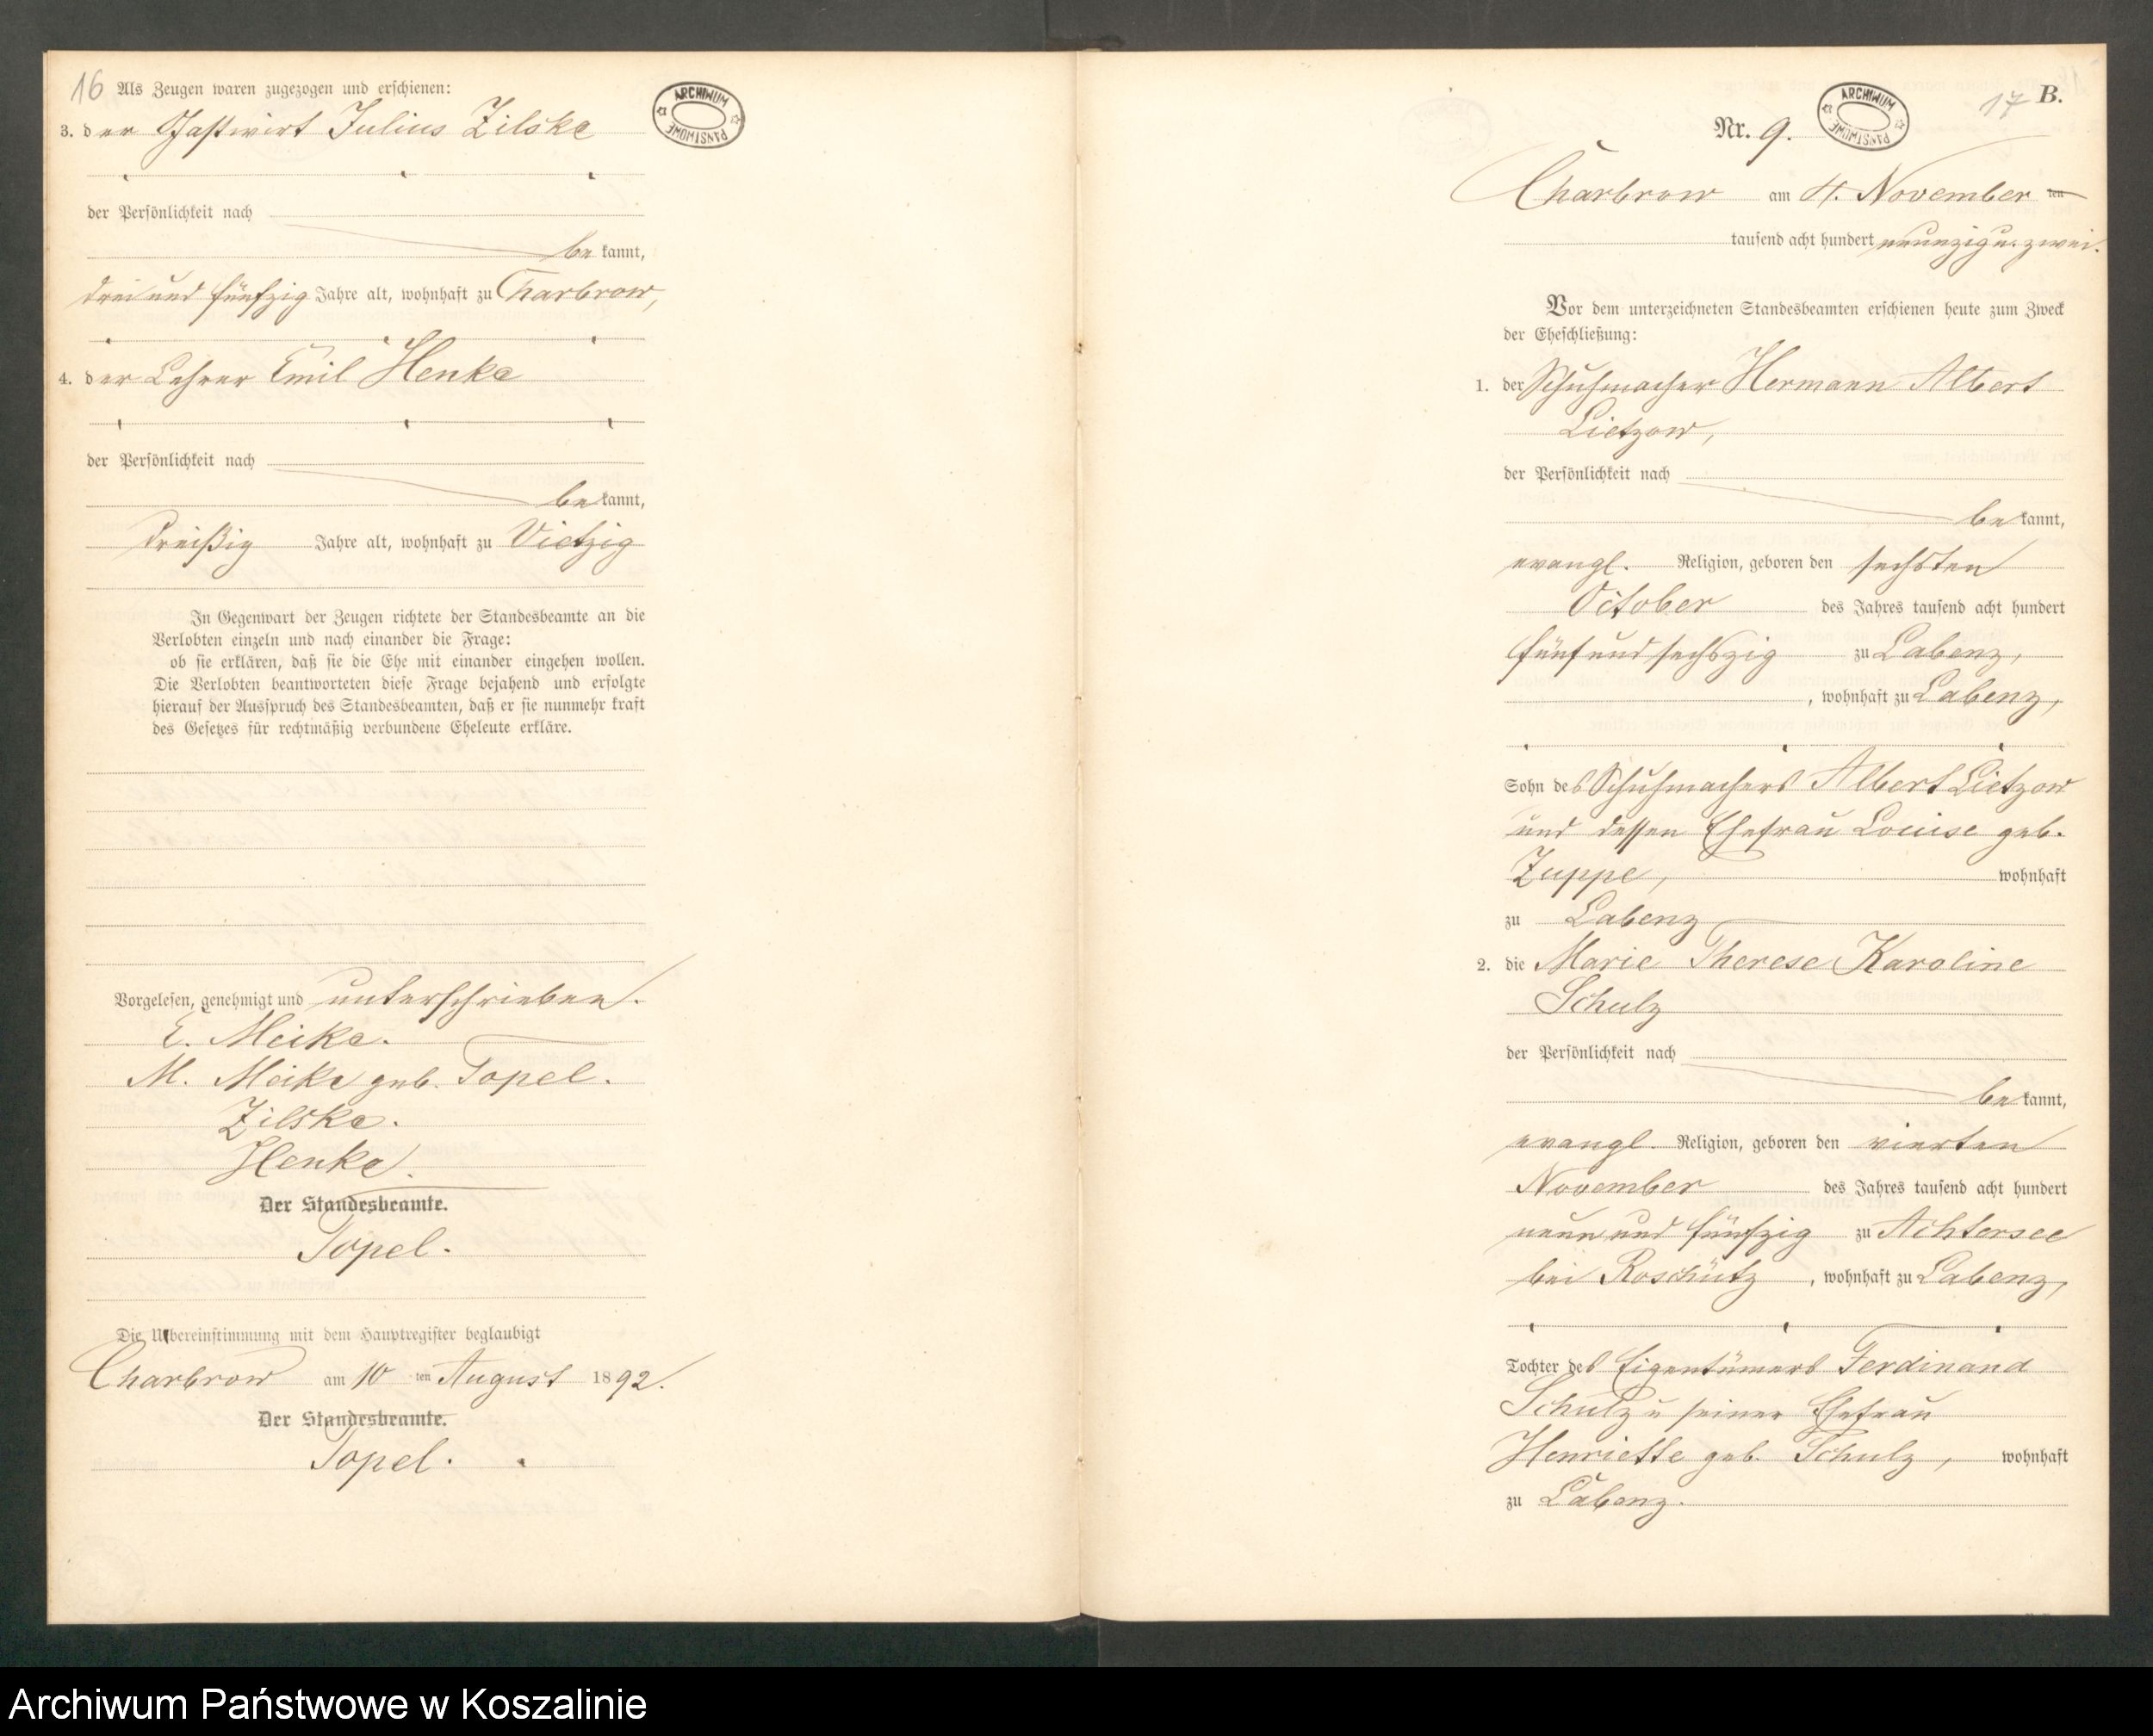 16 Als Zeugen waren zugezogen und erschienen:
ARCHIWUM PAŃSTWOWE
3. der Gastwirt Julius Zilske
der Persönlichkeit nach
be kannt,
drei und fünfzig Jahre alt, wohnhaft zu Charbrow,
4. der Lehrer Emil Henke
der Persönlichkeit nach
be kannt,
dreißig Jahre alt, wohnhaft zu Vietzig
In Gegenwart der Zeugen richtete der Standesbeamte an die
Verlobten einzeln und nach einander die Frage:
ob sie erklären, daß sie die Ehe mit einander eingehen wollen.
Die Verlobten beantworteten diese Frage bejahend und erfolgte
hierauf der Ausspruch des Standesbeamten, daß er sie nunmehr kraft
des Gesetzes für rechtmäßig verbundene Eheleute erkläre.
Vorgelesen, genehmigt und unterschrieben.
E. Meike.
M. Meike geb. Topel.
Zilske.
Henke.
Der Standesbeamte.
Topel.
Die Übereinstimmung mit dem Hauptregister beglaubigt
Charbrow am 10 ten August 1892.
Der Standesbeamte.
Topel.
17 B.
ARCHIWUM PAŃSTWOWE
Nr. 9.
Charbrow am 4. November ten
tausend acht hundert neunzig u. zwei.
Vor dem unterzeichneten Standesbeamten erschienen heute zum Zweck
der Eheschließung:
1. der Schuhmacher Hermann Albert
Lietzow,
der Persönlichkeit nach
be kannt,
evangl. Religion, geboren den sechsten
October des Jahres tausend acht hundert
fünf und sechszig zu Labenz,
, wohnhaft zu Labenz,
Sohn des Schuhmachers Albert Lietzow
und dessen Ehefrau Louise geb.
Zuppe, wohnhaft
zu Labenz
2. die Marie Therese Karoline
Schulz
der Persönlichkeit nach
be kannt,
evangl. Religion, geboren den vierten
November des Jahres tausend acht hundert
neun und fünfzig zu Achtersee
bei Roschütz, wohnhaft zu Labenz,
Tochter des Eigentümers Ferdinand
Schulz u seiner Ehefrau
Henriette geb. Schulz, wohnhaft
zu Labenz.
Archiwum Państwowe w Koszalinie